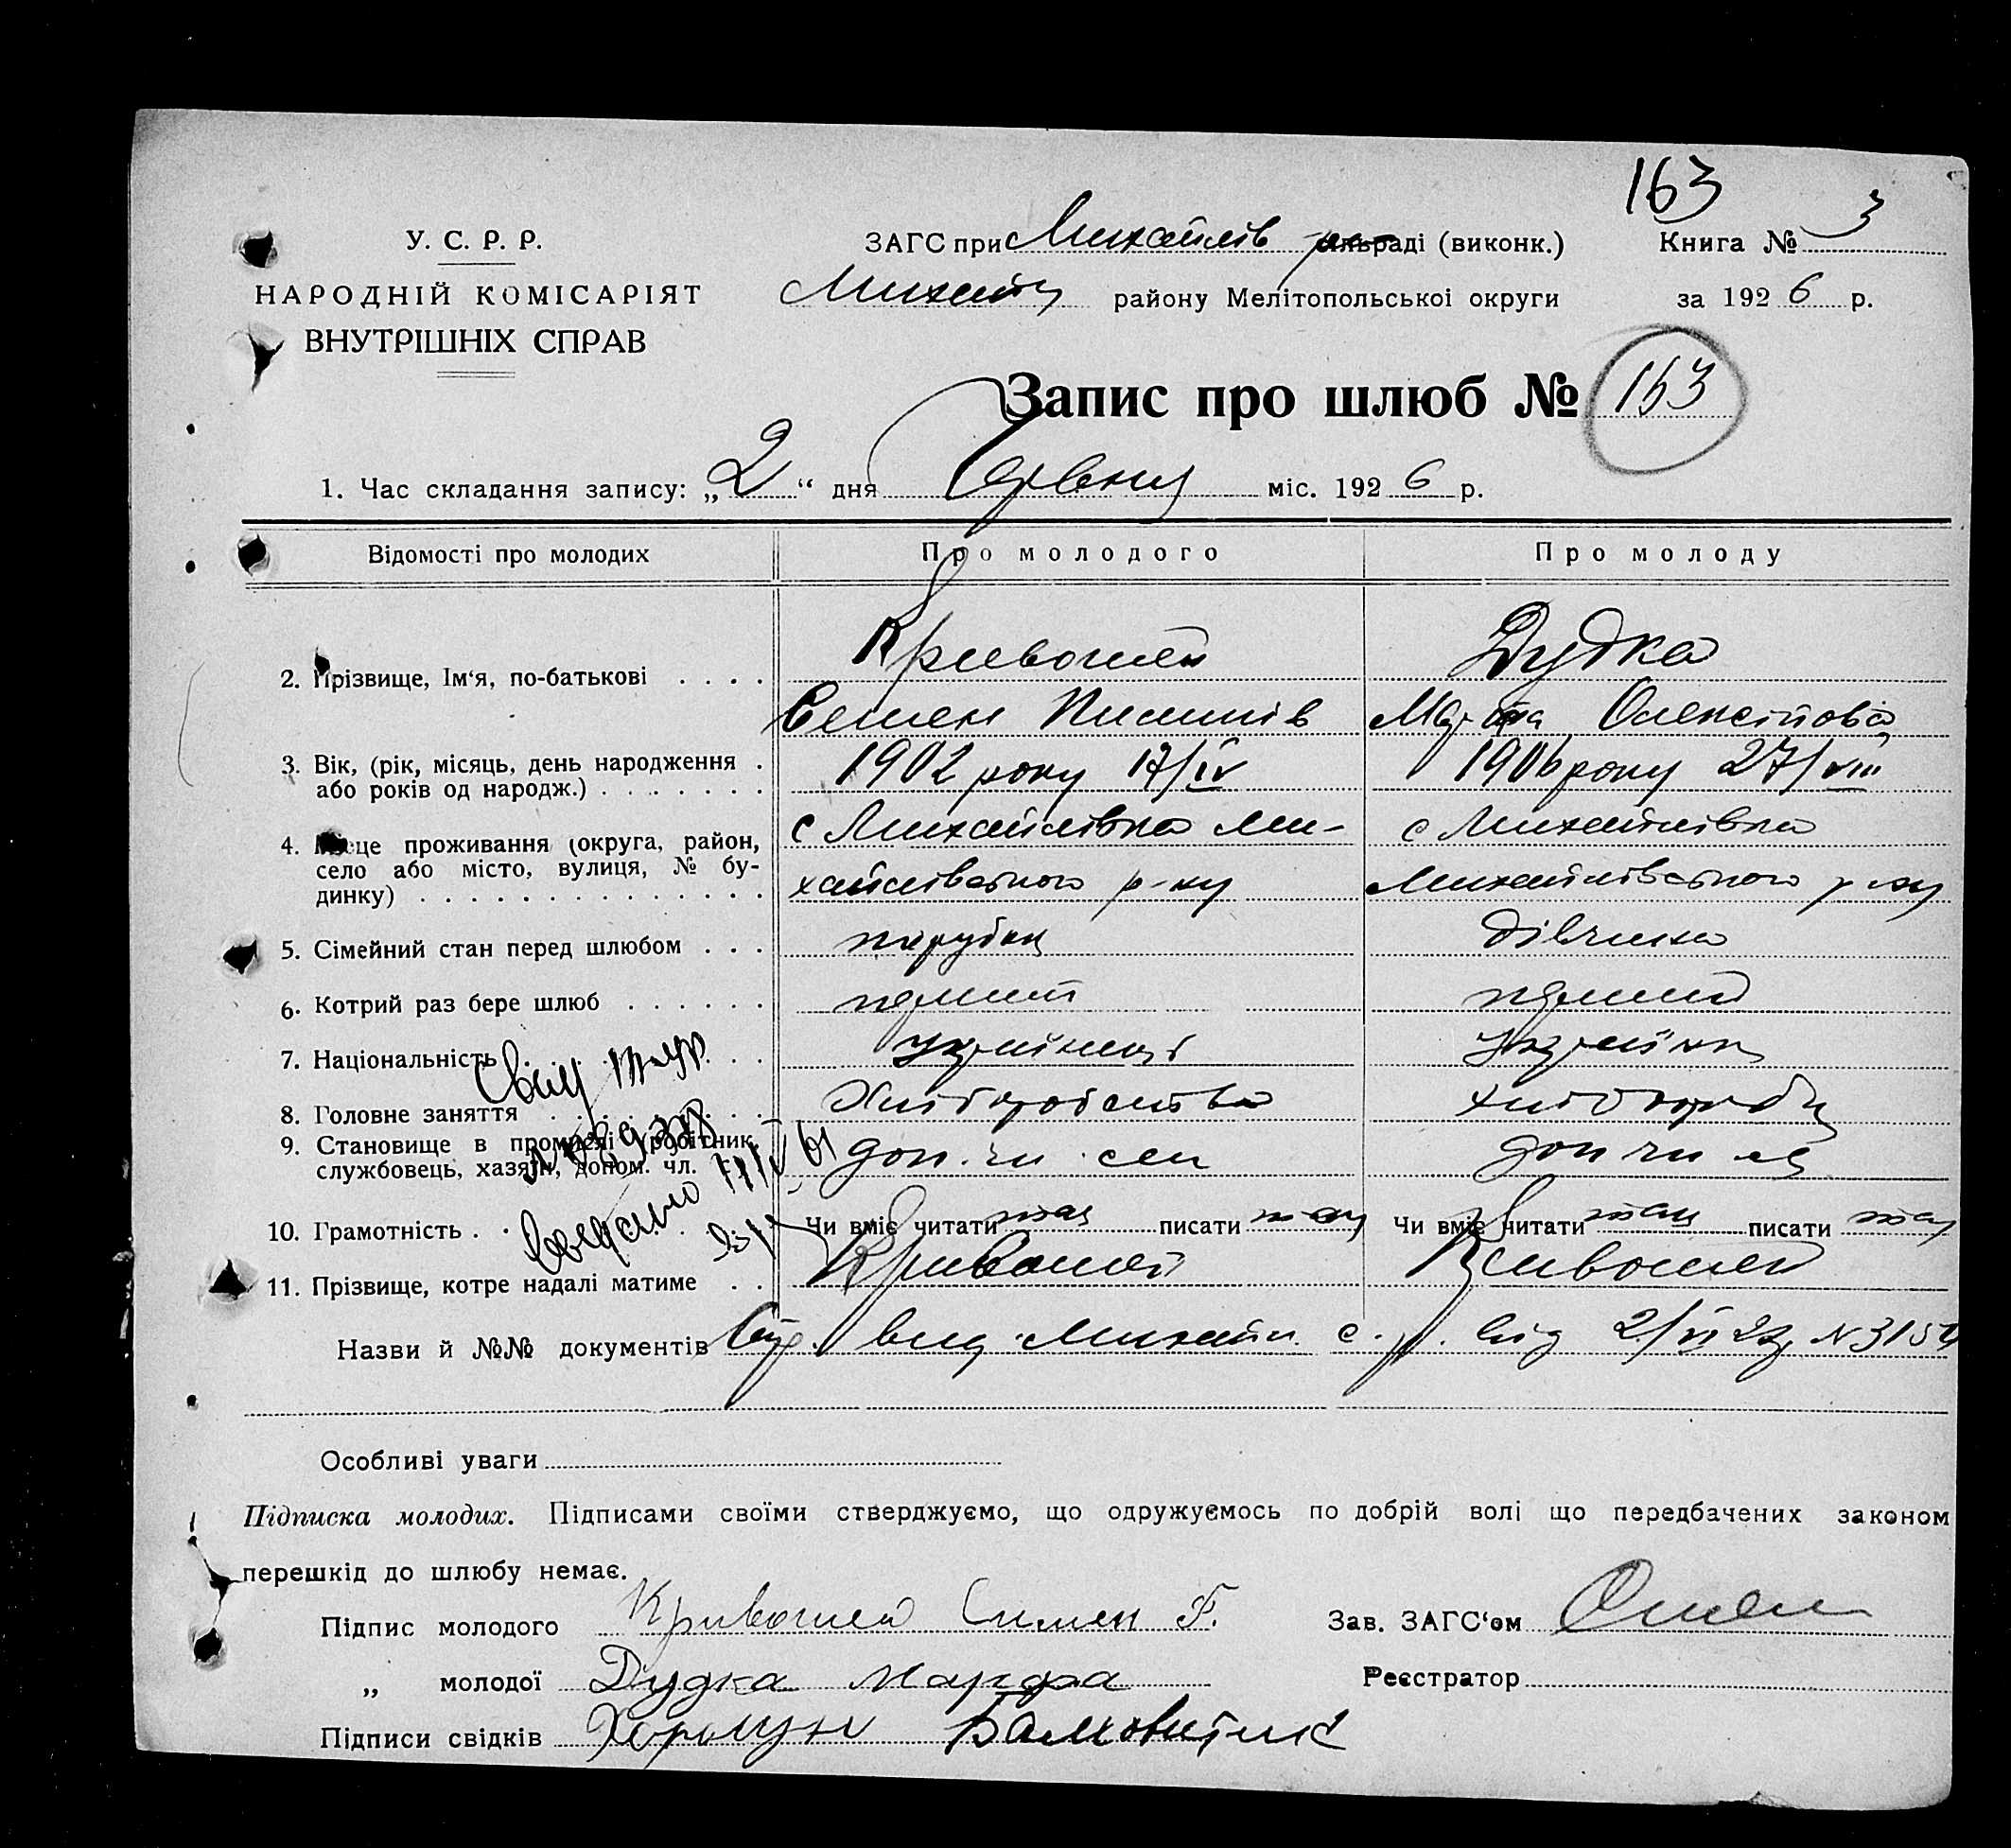 163
У. С. Р. Р.
НАРОДНІЙ КОМІСАРІЯТ
ВНУТРІШНІХ СПРАВ
ЗАГС при Михайлів р сільраді (виконк.) Книга № 3
району Мелітопольської округи за 1926 р.
Запис про шлюб № 163
1. Час складання запису: „2“ дня Червня міс. 1926 р.
Відомості про молодих Про молодого Про молоду
2. Прізвище, Ім'я, по-батькові . . . . Кривошей Дудка
Семен Пилипів Марфа Олексійовна
3. Вік, (рік, місяць, день народження . або років од народж.) . . . . . . . 1902 року 17/IV 1906 року 27/VIII
4. Місце проживання (округа, район, с Михайлівка Ми- с Михайлівка
село або місто, вулиця, № бу-
динку) . . . . . . . . . . . . . . хайлівського р-ну Михайлівського р-ну
5. Сімейний стан перед шлюбом . . . парубок дівчина
6. Котрий раз бере шлюб . . . . . . перший перший
7. Національність українець українка
8. Головне заняття Хліборобство хлібороб
9. Становище в промислі (робітник,
службовець, хазяїн, допом. чл. доп. чл. сем доп чл
10. Грамотність . Чи вміє читати так писати так Чи вміє читати так писати так
11. Прізвище, котре надалі матиме . . Кривошей Кривошей
Назви й №№ документів вид. Михайл. с. р. від 2/VI 26 N 3154
Особливі уваги
Підписка молодих. Підписами своїми стверджуємо, що одружуємось по добрій волі що передбачених законом
перешкід до шлюбу немає.
Підпис молодого Кривошей Симен Зав. ЗАГС'ом
„ молодої Дудка Марфа Реєстратор
Підписи свідків